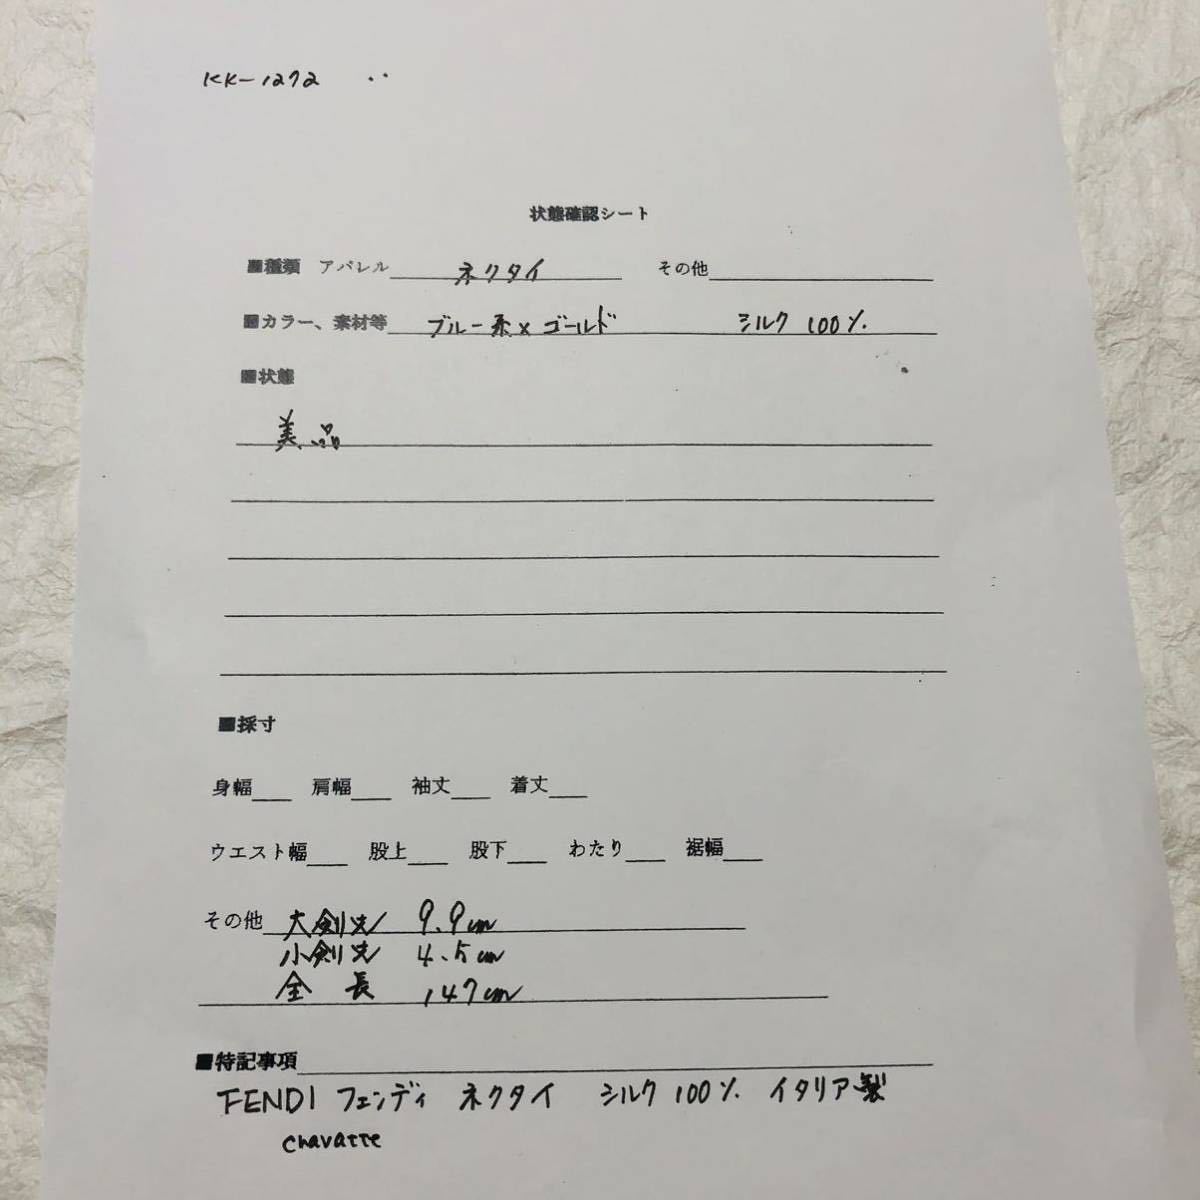 KK-1272
状態確認シート
■種類 アパレル ネクタイ その他
■カラー、素材等 ブルー系×ゴールド シルク 100%.
■状態
美品
■採寸
身幅 肩幅 袖丈 着丈
ウエスト幅 股上 股下 わたり 裾幅
その他 大剣先 9.9cm
小剣先 4.5cm
全長 147cm
■特記事項
FENDI フェンディ ネクタイ シルク 100%. イタリア製
chavatte